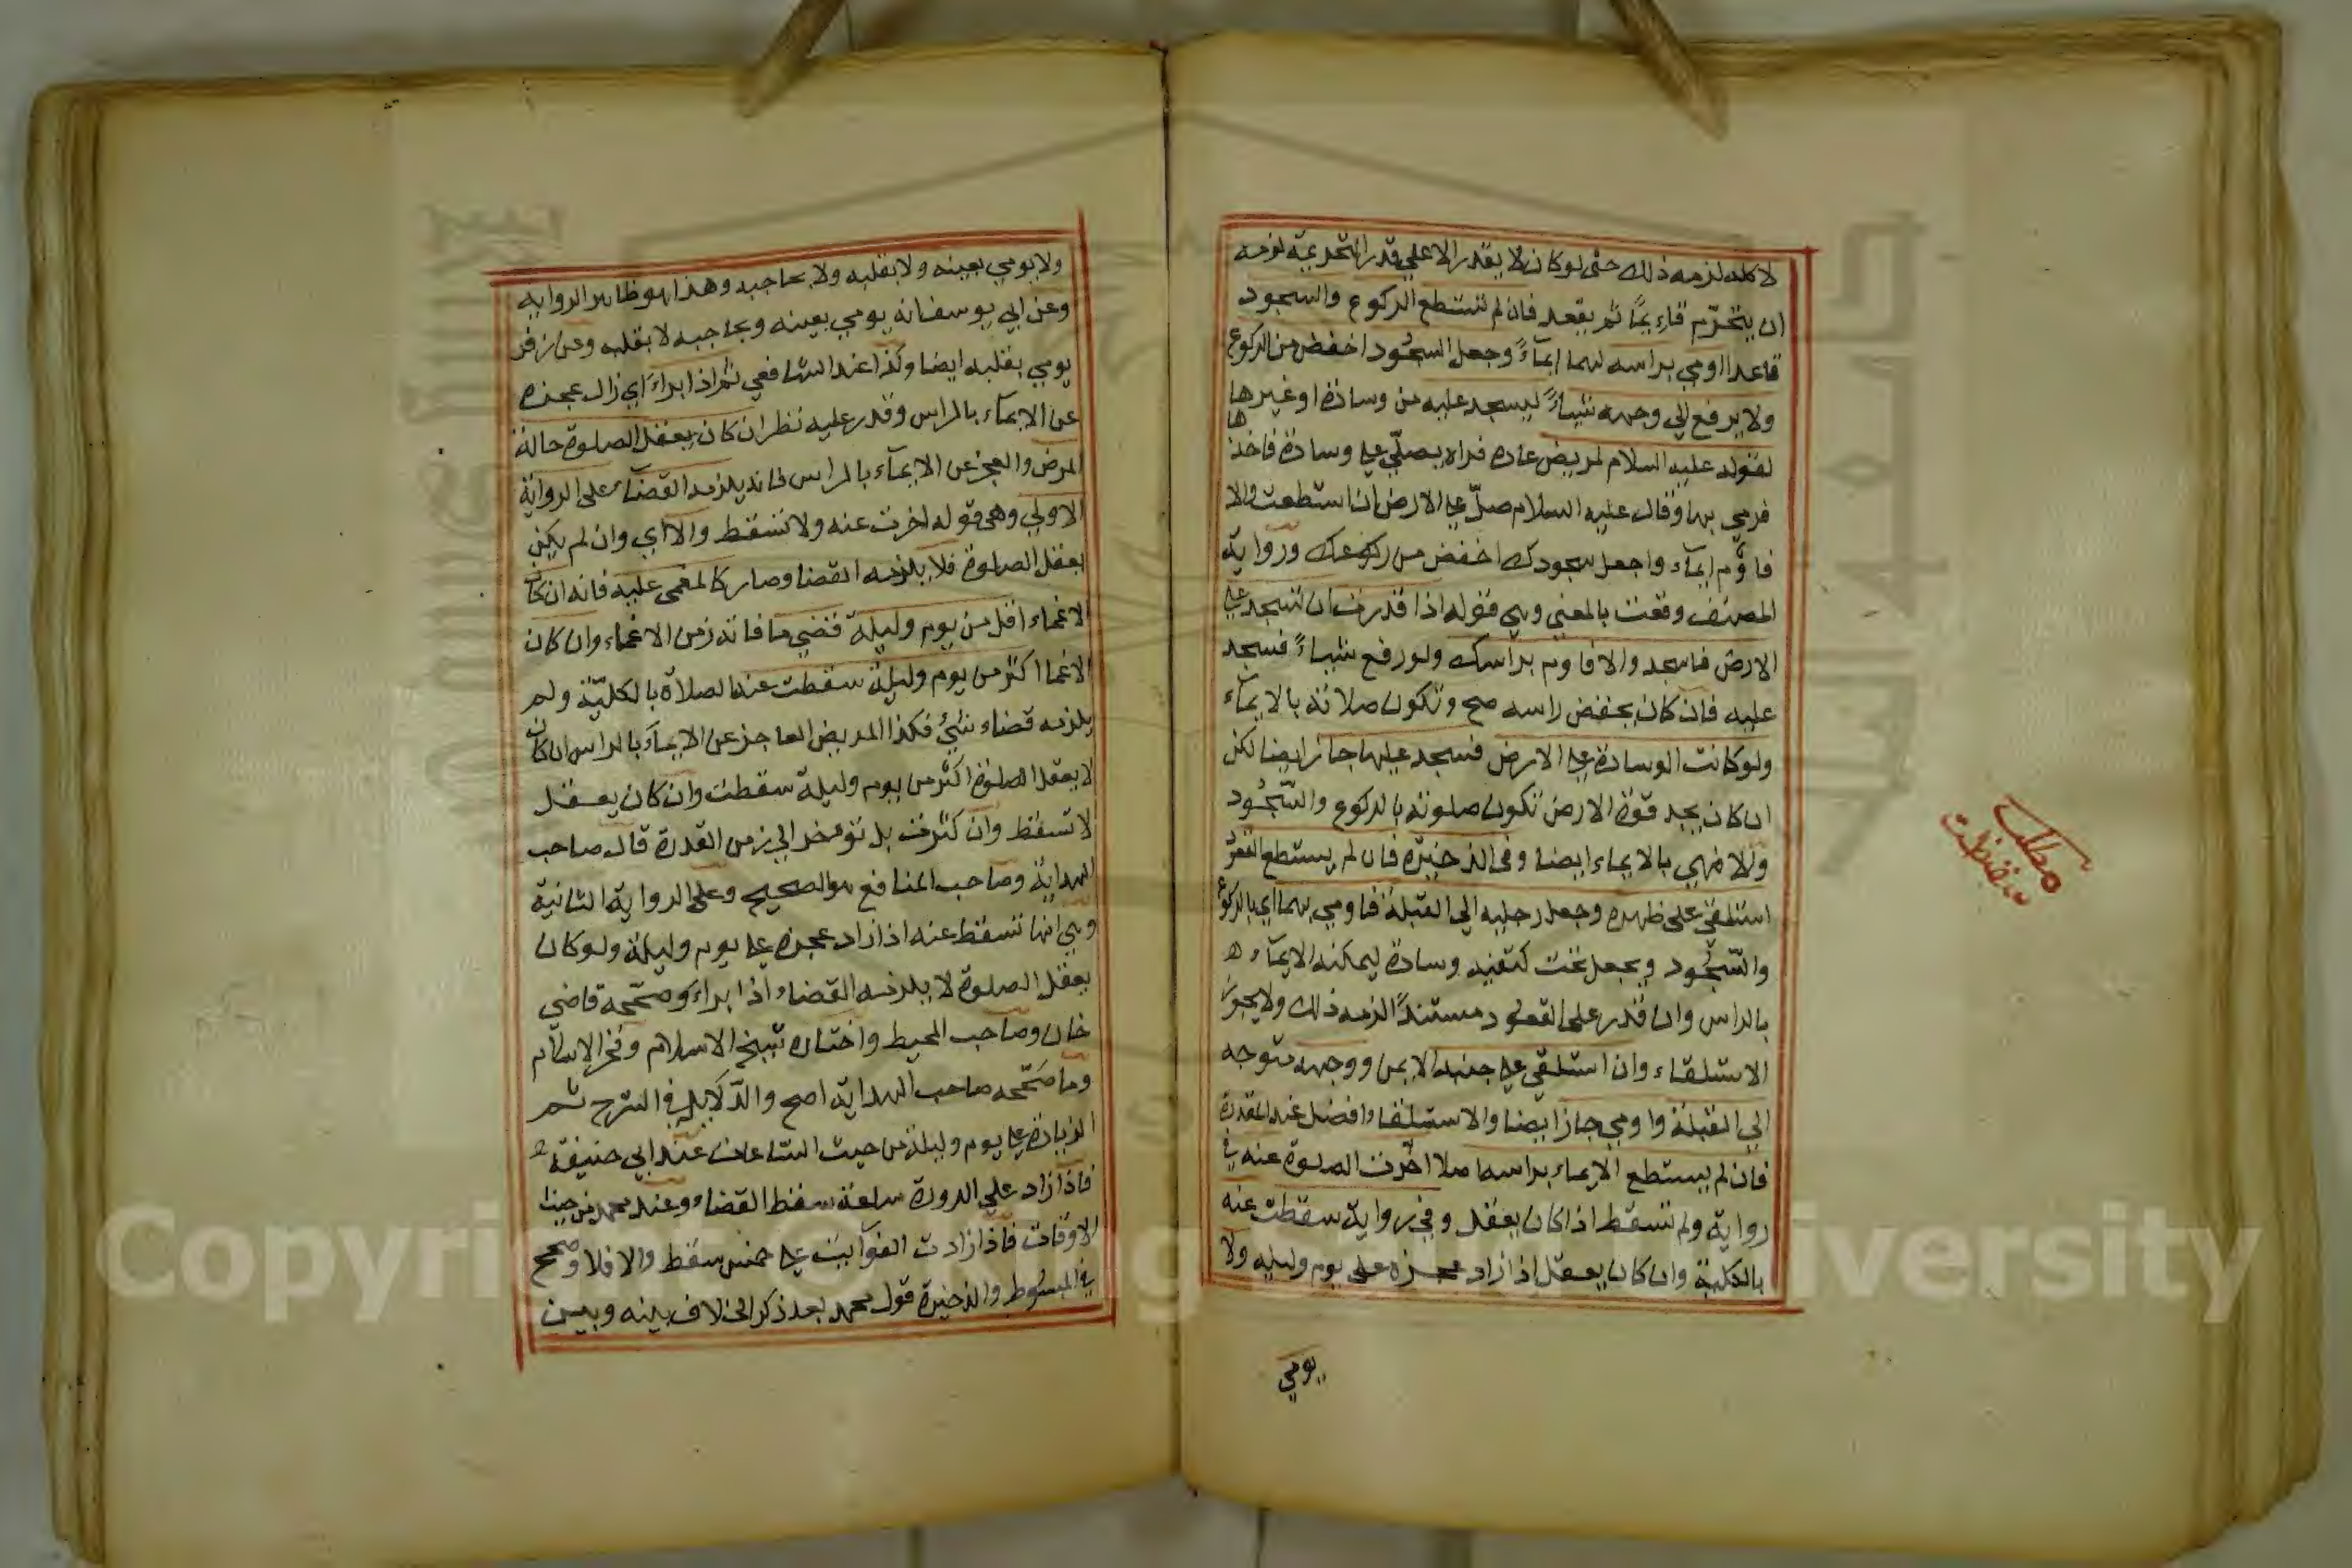 لا كله لزمه ذلك حتى لو كان لا يقدر الا على قدر التحريمة لزمه
ان يتحرّم قاءيمًا ثم يقعد فان لم تستطع الركوع والسجود
قاعدا اومي براسه لهما ايمآءً وجعل السجُود اخفض من الركوع
ولا يرفع الي وجهه شياءً ليسجد عليه من وسادة او غيرها
لقوله عليه السلام لمريض عاده فراه يصلّي على وسادة فاخذها
فرمي بها وقال عليه السلام صلّ على الارض ان استطعت والا
فاوم ايمآء واجعل سجودك اخفض من ركوعك ورواية
المصنف وقعت بالمعني وهي قوله اذا قدرت ان تسجد على
الارض فاسجد والا فاوم براسك ولو رفع شياءً فسجد
عليه فان كان يخفض راسه صح وتكون صلاته بالايمآء
ولو كانت الوسادة على الارض فسجد عليها جاز ايضا لكن
ان كان يجد قوة الارض تكون صلوته بالركوع والسّجُود
والا فهي بالايماء ايضا وفي الذخيرة فان لم يستطع القعود
استلقى على ظهره وجعل رجليه الي القبلة فاومي بهما اي بالركوع
والسّجُود ويجعل تحت كتفيه وسادة ليمكنه الايمآء ه
بالراس وان قدر على القعود مستنداً لزمه ذلك ولا يجوز
الاستلقاء وان استلقي على جنبه الايمن ووجهه متوجه
الي القبلة واومي جاز ايضا والاستلقاء افضل عند المقدرة
فان لم يستطع الايماء براسه اصلا اخّرت الصلوة عنه في
رواية ولم تسقط اذا كان يعقل وفي رواية سقطت عنه
بالكلية وان كان يعقل اذا زاد عجزه على يوم وليله ولا
يومي
مطلب
ولا يومي بعينه ولا بقلبه ولا بحاجبه وهذا هو ظاهر الروايه
وعن ابي يوسف انه يومي بعينه وبحاجبه لا بقلبه وعن زفر
يومي بقلبه ايضا وكذا عند الشافعي ثم اذا ابراءَ اي زال عجزه
عن الايمآء بالراس وقدر عليه نظر ان كان يعقل الصلوة حالة
المرض والعجز عن الايمآء بالراس فانه يلزمه القضآء على الرواية
الاولي وهي قوله اخرت عنه ولا تسقط والا اي وان لم يكن
يعقل الصلوة فلا يلزمه القضا وصار كالمغمى عليه فانه ان كان
الاغماء اقل من يوم وليلة قضي ما فاته زمن الاغماء وان كان
الاغما اكثر من يوم وليلة سقطت عنه الصلاة بالكليّة ولم
يلزمه قضاء شيئ فكذا المريض العاجز عن الايمآء بالراس ان كان
لا يعقل الصلوة اكثر من يوم وليلة سقطت وان كان يعقل
لا تسقط وان كثرت بل تؤخر الي زمن القدرة قال صاحب
الهداية وصاحب المنافع هو الصحيح وعلى الرواية الثانية
وهي انها تسقط عنه اذا زاد عجزه على يوم وليلة ولو كان
يعقل الصلوة لا يلزمه القضاء اذا براءَ وصحّحه قاضي
خان وصاحب المحيط واختاره شيخ الاسلام وفخر الاسلام
وما صَحّحه صاحب الهداية اصح والدّلايل في الشرح ثم
الزيادة على يوم وليلة من حيث السّاعات عند ابي حنيفة ه
فاذا زاد على الدورة ساعة سقط القضاء وعند محمد من حيث
الاوقات فاذا زادت الفوآيت على خمس سقط والا فلا وصحح
في المبسُوط والذخيرة قول محمد بعد ذكر الخلاف بينه وبين